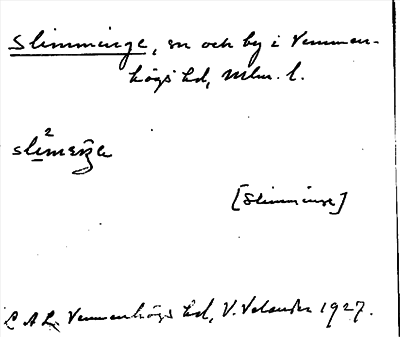 Slimminge, sn och by i Vemmen-
högs hd, Mlm. l.
2
slimeŋa
[Slimminge]
LAL Vemmenhögs hd, V. Velander 1927.